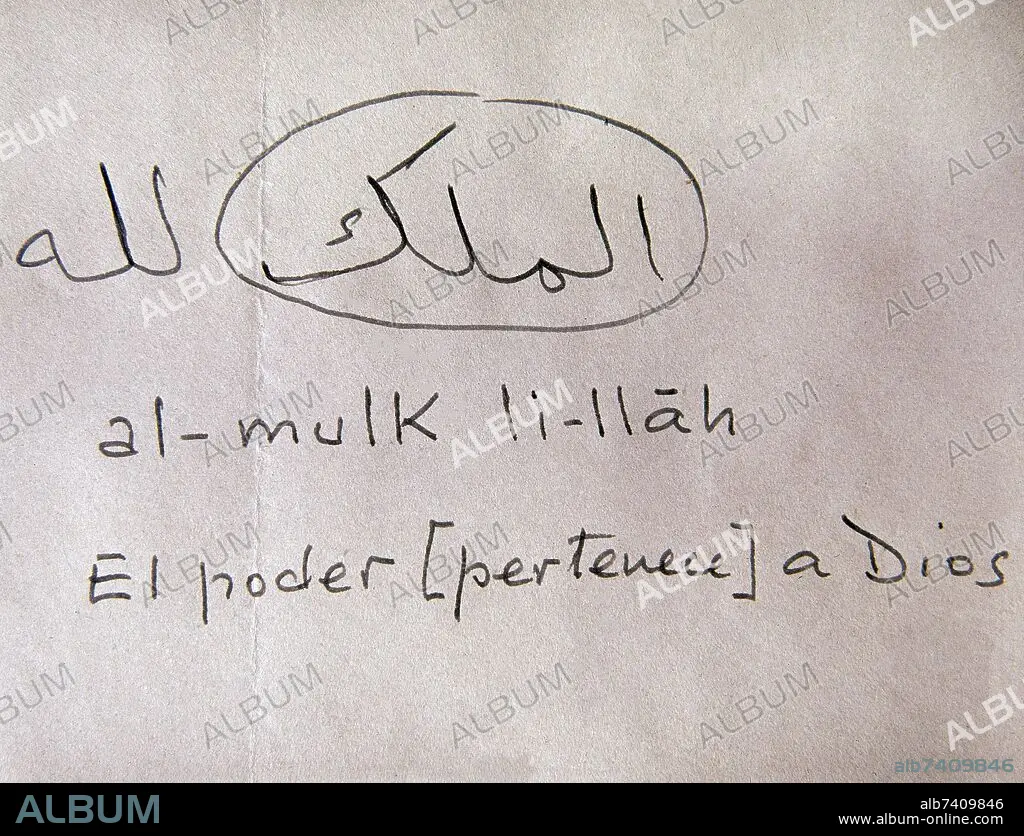 الملك لله
al-mulk li-llāh
El poder [pertenece] a Dios
alb7409846
ALBUM
alb7409846
www.album-online.com